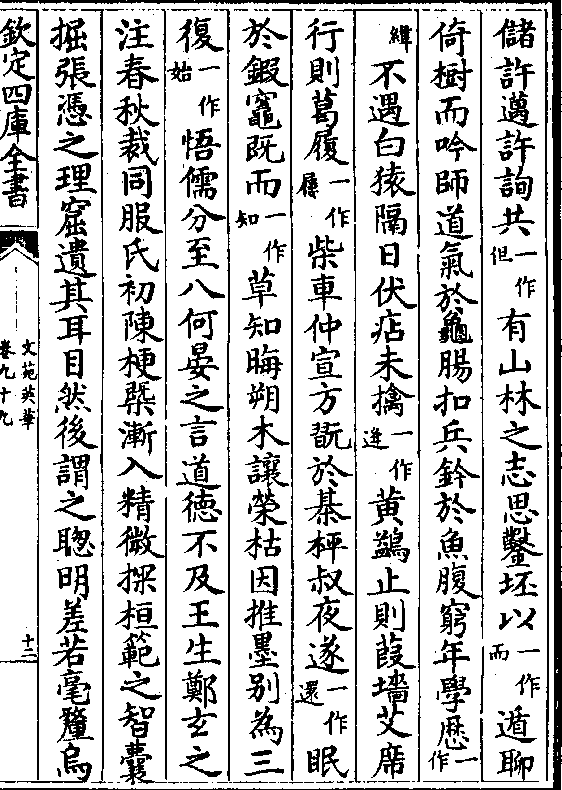 儲許邁許詢共一作但有山林之志思鑿坯以一作而遁聊
倚樹而吟師道氣於龜腸扣兵鈐於魚腹窮年學歴一作
緯不遇白猿隔日伏店未擒一作逢黄鷂止則葭墻艾席
行則葛履一作屨柴車仲宣方翫於棊枰叔夜遂一作還眠
於鍜竈既而一作知草知晦朔木讓榮枯因推墨别為三
復一作始悟儒分至八何晏之言道德不及王生鄭玄之
注春秋裁同服氏初陳梗槩漸入精微探桓範之智囊
掘張憑之理窟遺其耳目然後謂之聰明差若毫釐烏
欽定四庫全書
文苑英華
卷九十九
十三